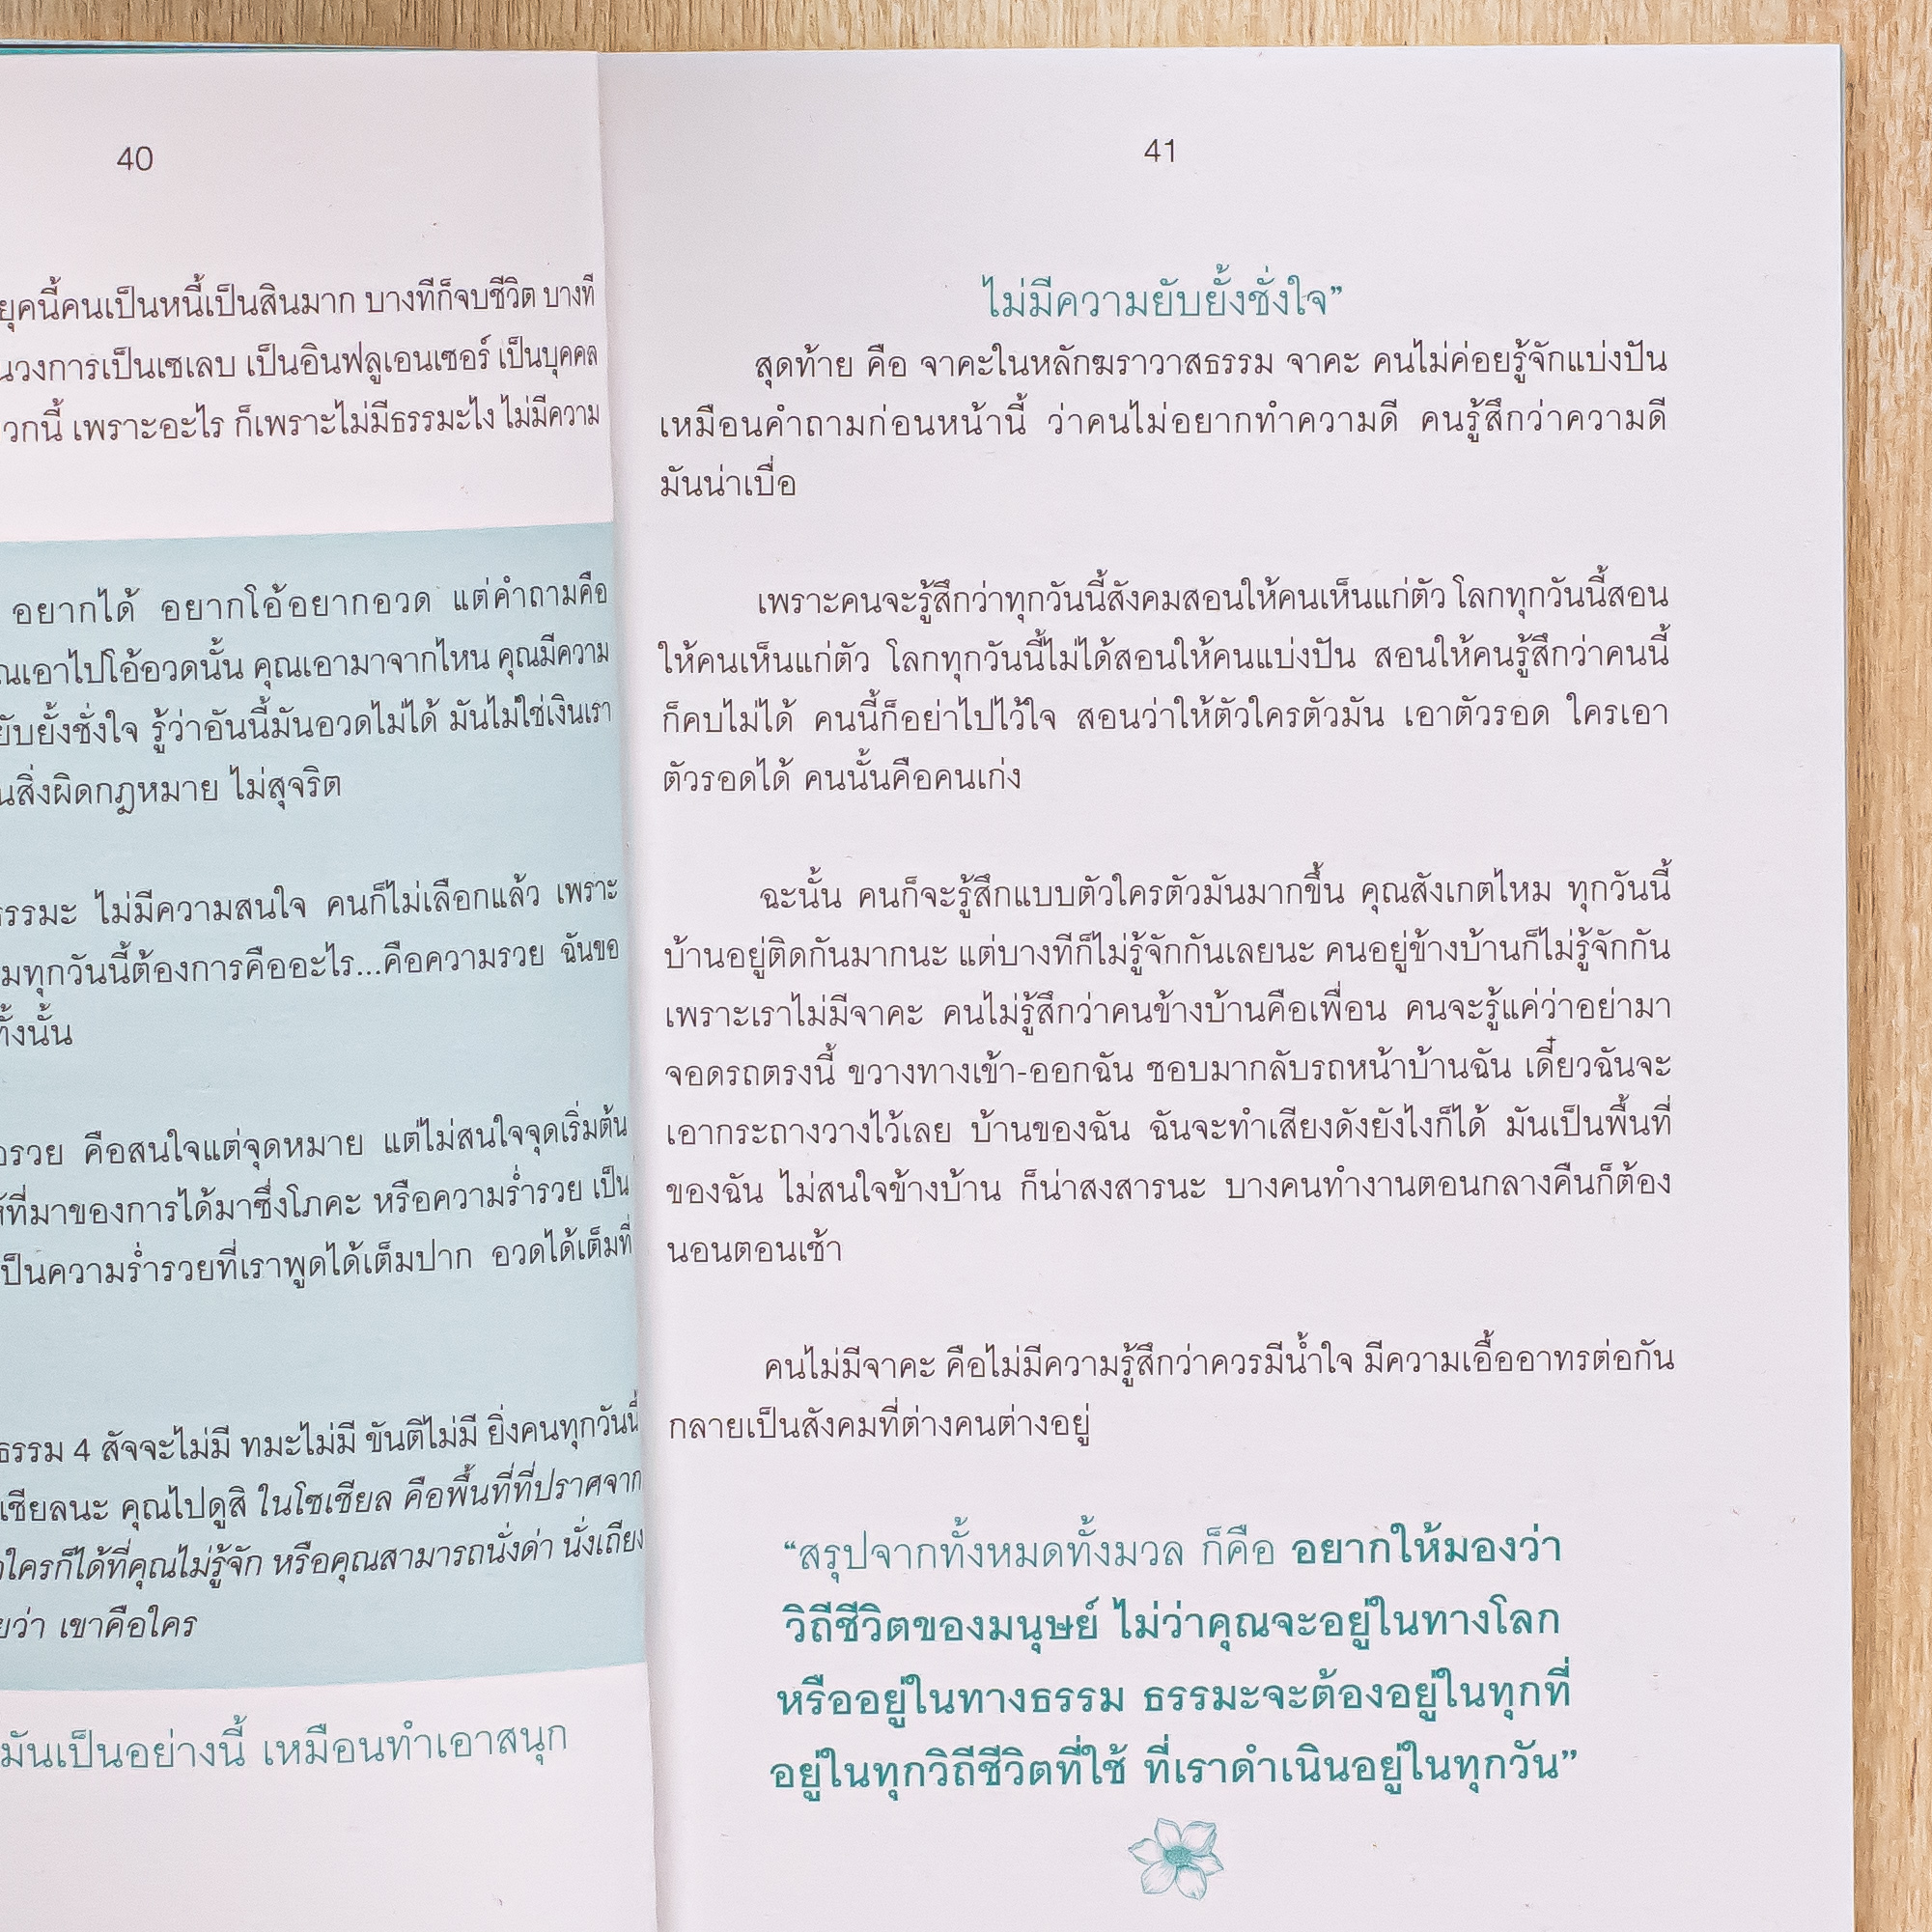 40
ยุคนี้คนเป็นหนี้เป็นสินมาก บางทีก็จบชีวิต บางที
วงการเป็นเซเลบ เป็นอินฟลูเอนเซอร์ เป็นบุคคล
เพราะอะไร ก็เพราะไม่มีธรรมะไง ไม่มีความ
อยากได้ อยากโอ้อยากอวด แต่คำถามคือ
เอาไปโอ้อวดนั้น คุณเอามาจากไหน คุณมีความ
ยับยั้งชั่งใจ รู้ว่าอันนี้มันอวดไม่ได้ มันไม่ใช่เงินเรา
สิ่งผิดกฎหมาย ไม่สุจริต
ธรรมะ ไม่มีความสนใจ คนก็ไม่เลือกแล้ว เพราะ
ทุกวันนี้ต้องการคืออะไร...คือความรวย ฉันขอ
ทั้งนั้น
รวย คือสนใจแต่จุดหมาย แต่ไม่สนใจจุดเริ่มต้น
ที่มาของการได้มาซึ่งโภคะ หรือความร่ำรวย เป็น
เป็นความร่ำรวยที่เราพูดได้เต็มปาก อวดได้เต็มที่
ธรรม 4 สัจจะไม่มี ทมะไม่มี ขันติไม่มี ยิ่งคนทุกวันนี้
เชียลนะ คุณไปดูสิ ในโซเชียล คือพื้นที่ที่ปราศจาก
ใครก็ได้ที่คุณไม่รู้จัก หรือคุณสามารถนั่งด่า นั่งเถียง
ว่า เขาคือใคร
มันเป็นอย่างนี้ เหมือนทำเอาสนุก
41
ไม่มีความยับยั้งชั่งใจ”
สุดท้าย คือ จาคะในหลักฆราวาสธรรม จาคะ คนไม่ค่อยรู้จักแบ่งปัน
เหมือนคำถามก่อนหน้านี้ ว่าคนไม่อยากทำความดี คนรู้สึกว่าความดี
มันน่าเบื่อ
เพราะคนจะรู้สึกว่าทุกวันนี้สังคมสอนให้คนเห็นแก่ตัว โลกทุกวันนี้สอน
ให้คนเห็นแก่ตัว โลกทุกวันนี้ไม่ได้สอนให้คนแบ่งปัน สอนให้คนรู้สึกว่าคนนี้
ก็คบไม่ได้ คนนี้ก็อย่าไปไว้ใจ สอนว่าให้ตัวใครตัวมัน เอาตัวรอด ใครเอา
ตัวรอดได้ คนนั้นคือคนเก่ง
ฉะนั้น คนก็จะรู้สึกแบบตัวใครตัวมันมากขึ้น คุณสังเกตไหม ทุกวันนี้
บ้านอยู่ติดกันมากนะ แต่บางทีก็ไม่รู้จักกันเลยนะ คนอยู่ข้างบ้านก็ไม่รู้จักกัน
เพราะเราไม่มีจาคะ คนไม่รู้สึกว่าคนข้างบ้านคือเพื่อน คนจะรู้แค่ว่าอย่ามา
จอดรถตรงนี้ ขวางทางเข้า-ออกฉัน ชอบมากลับรถหน้าบ้านฉัน เดี๋ยวฉันจะ
เอากระถางวางไว้เลย บ้านของฉัน ฉันจะทำเสียงดังยังไงก็ได้ มันเป็นพื้นที่
ของฉัน ไม่สนใจข้างบ้าน ก็น่าสงสารนะ บางคนทำงานตอนกลางคืนก็ต้อง
นอนตอนเช้า
คนไม่มีจาคะ คือไม่มีความรู้สึกว่าควรมีน้ำใจ มีความเอื้ออาทรต่อกัน
กลายเป็นสังคมที่ต่างคนต่างอยู่
“สรุปจากทั้งหมดทั้งมวล ก็คือ อยากให้มองว่า
วิถีชีวิตของมนุษย์ ไม่ว่าคุณจะอยู่ในทางโลก
หรืออยู่ในทางธรรม ธรรมะจะต้องอยู่ในทุกที่
อยู่ในทุกวิถีชีวิตที่ใช้ ที่เราดำเนินอยู่ในทุกวัน”